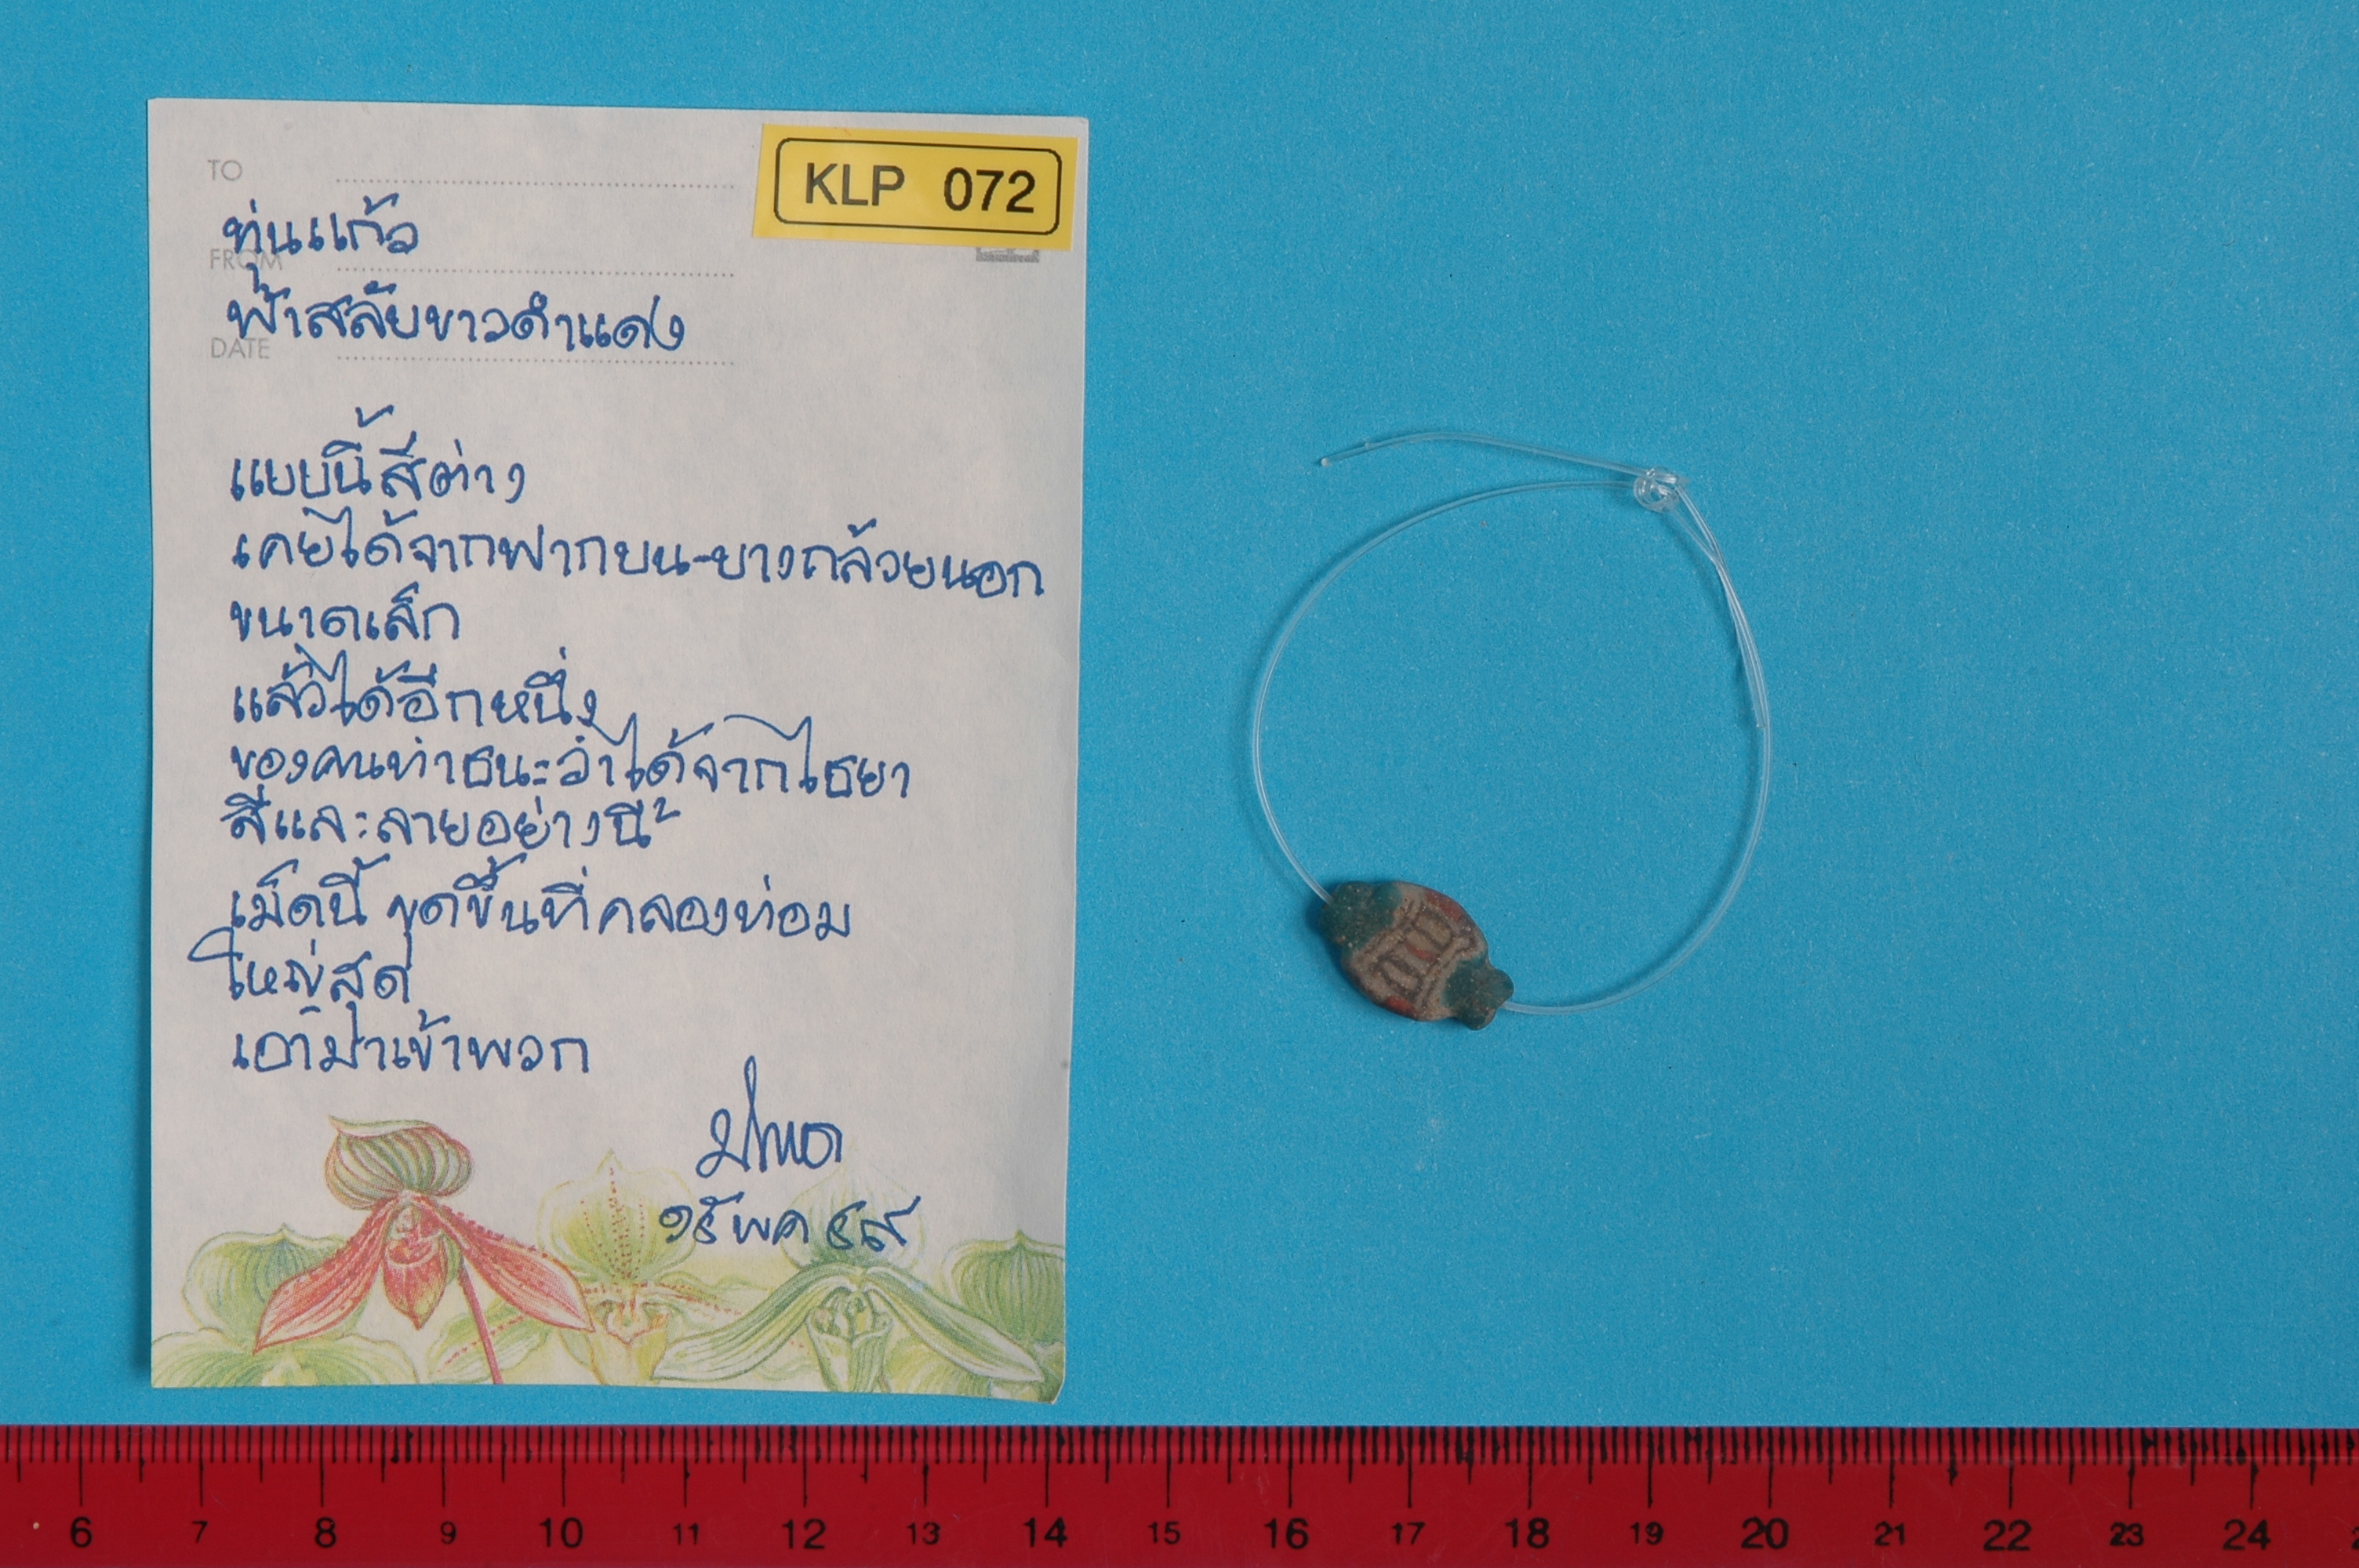 KLP 072
TO
ทุ่นแก้ว
FROM
ฟ้าสลับขาวดำแดง
DATE
แบบนี้สีต่าง
เคยได้จากฟากบน-บางกล้วยนอก
ขนาดเล็ก
แล้วได้อีกหนึ่ง
ของคนท่าชนะว่าได้จากไชยา
สีและลายอย่างนี้
เม็ดนี้ขุดขึ้นที่คลองท่อม
ใหญ่สุด
เอามาเข้าพวก
พค ๔๙
6 7 8 9 10 11 12 13 14 15 16 17 18 19 20 21 22 23 24